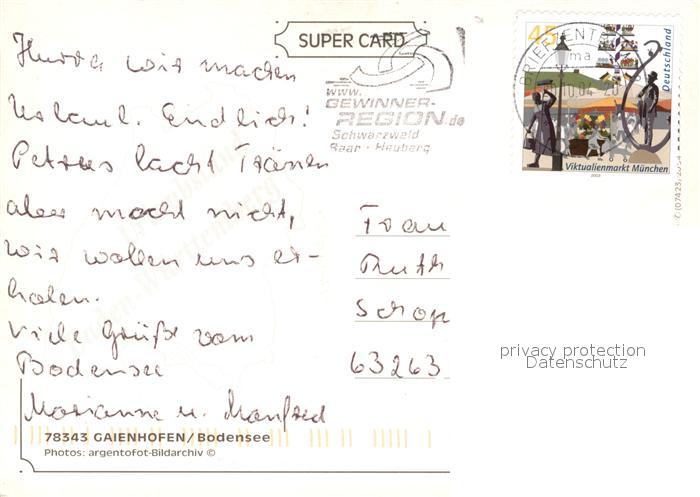 SUPER CARD
45
Deutschland
BRIEFZENTR
ma
10.04-20
Viktualienmarkt München
2003
www.
GEWINNER-
REGION.de
Schwarzwald
Baar · Heuberg
Hurra wir machen
Urlaub. Endlich!
Petrus lacht Tränen
aber macht nicht,
wir wollen uns er-
holen.
Viele Grüße vom
Bodensee
Marianne u. Manfred
Frau
Ruth
Schop
63263
privacy protection
Datenschutz
78343 GAIENHOFEN/Bodensee
Photos: argentofot-Bildarchiv ©